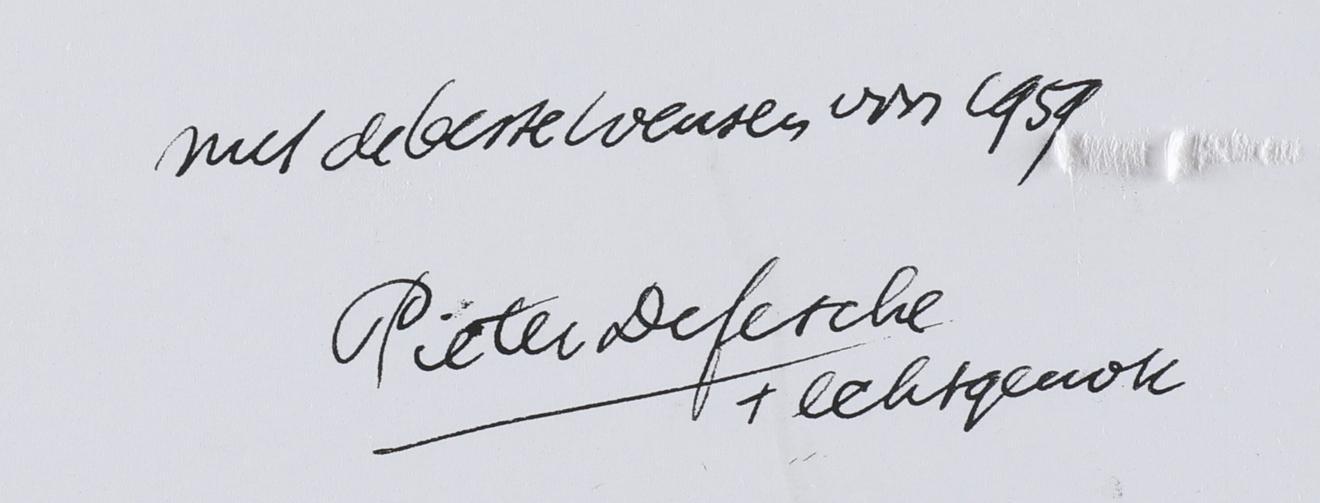 met de beste wensen voor 1959
Pieter Defesche
+ echtgenote